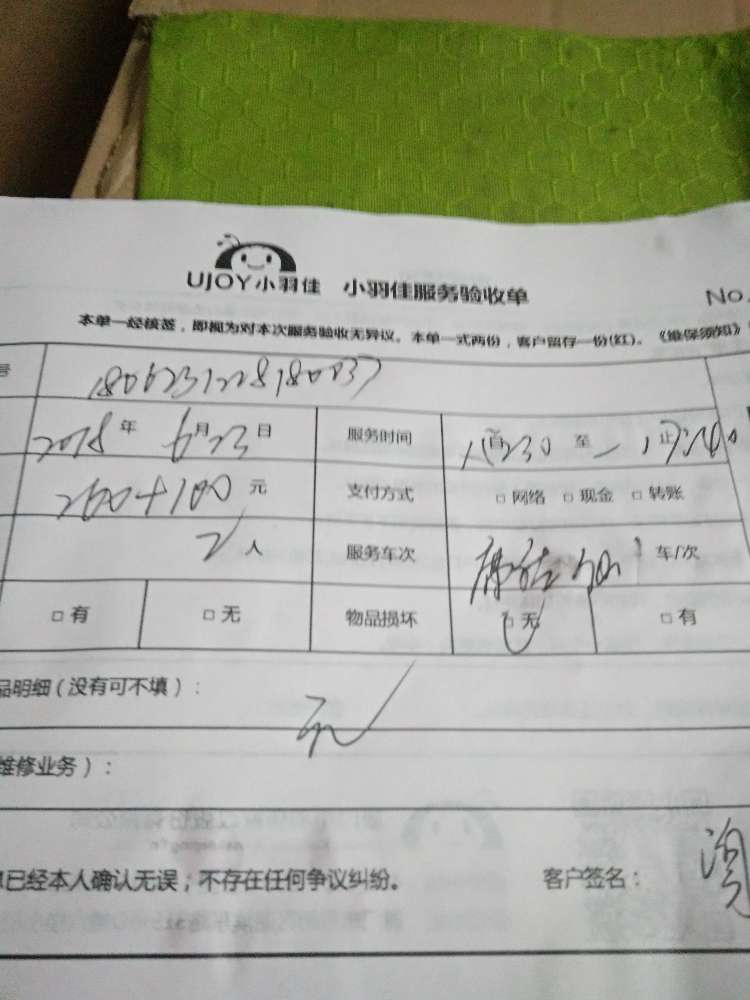 UJOY小羽佳 小羽佳服务验收单 No.
本单一经核签，即视为对本次服务验收无异议。本单一式两份，客户留存一份(红)。《维保须知》
号 1806231228180037
2018年6月23日 服务时间 至 止
260+100元 支付方式 □网络 □现金 □转账
2人 服务车次 车/次
□有 □无 物品损坏 □无 □有
品明细（没有可不填）：
无
维修业务）：
已经本人确认无误，不存在任何争议纠纷。 客户签名：